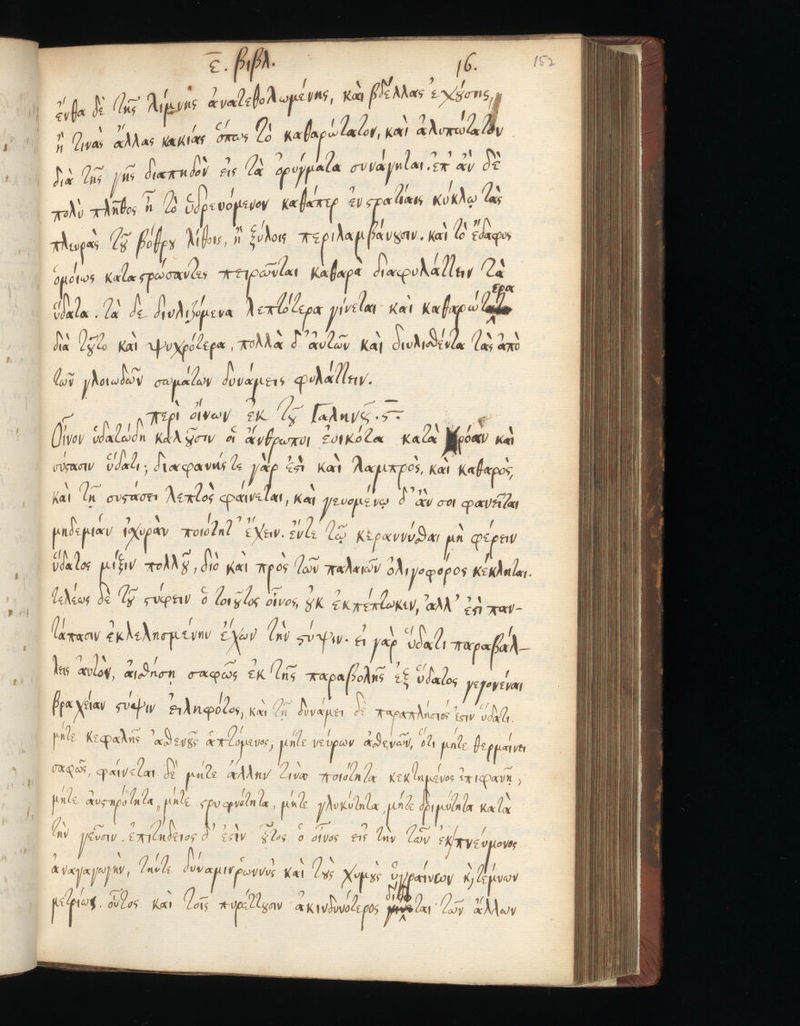 ε. βιβλ. 16. 152
ἔνθα δὲ τῆς λίμνης ἀνατεθολωμένης, καὶ βδέλλας ἐχούσης,
ἢ τινὰς ἄλλας κακίας ὅπως τὸ καθαρώτατον, καὶ ἀλυπώτατον
διὰ τῆς γῆς διαπηδὸν εἰς τὰ ὀρύγματα συνάγηται. ἐπ' ἂν δὲ
πολὺ πλῆθος ἦ τὸ ὑδρευόμενον καθάπερ ἐν στρατίαις κύκλῳ τὰς
πλευρὰς τοῦ βόθρου λίθοις, ἢ ξύλοις περιλαμβάνουσιν. καὶ τὸ ἔδαφος
ὁμοίως καταστρώσαντες πειρῶνται καθαρὰ διαφυλάττειν τὰ
ὕδατα. τὰ δὲ διυλιζόμενα λεπτότερα γίνεται καὶ καθαρώτερα
διὰ τοῦτο καὶ ψυχρότερα, πολλὰ δ' αὐτῶν καὶ διυλισθέντα τὰς ἀπὸ
τῶν γλοιωδῶν σωμάτων δυνάμεις φυλάττειν.
περὶ οἴνων ἐκ τοῦ Γαληνοῦ. ϛ.
Οἶνον ὑδατώδη καλοῦσιν οἱ ἄνθρωποι ἐοικότα κατὰ χρόαν καὶ
σύστασιν ὕδατι; διαφανής τε γὰρ ἐστὶ καὶ λαμπρὸς, καὶ καθαρὸς,
καὶ τῇ συστάσει λεπτὸς φαίνεται, καὶ γευομένῳ δ' ἄν σοι φανεῖται
μηδεμίαν ἰσχυρὰν ποιότητ' ἔχειν. ἔντε τῷ κεράννυσθαι μὴ φέρειν
ὕδατος μίξιν πολλοῦ, διὸ καὶ πρὸς τῶν παλαιῶν ὀλιγοφόρος κέκληται.
τελέως δὲ τοῦ στύφειν ὁ τοιοῦτος οἶνος, οὐκ ἐκπέπτωκεν, ἀλλ' ἐστὶ παν-
τάπασιν ἐκλελησμένην ἔχων τὴν στύψιν. εἰ γὰρ ὕδατι παραβάλ-
λεις αὐτὸν, αἰσθήσῃ σαφῶς ἐκ τῆς παραβολῆς ἐξ ὕδατος γεγονέναι
βραχεῖαν στύψιν εἰληφότος, καὶ τῇ δυνάμει δὲ παραπλήσιός ἐστιν ὕδατι.
μήτε κεφαλῆς ἀσθενοῦς ἁπτόμενος, μήτε νεύρων ἀσθενῶν, ὅτι μήτε θερμαίνει
σαφῶς, φαίνεται δὲ μήτε ἄλλην τινὰ ποιότητα κεκτημένος ἐπιφανῆ;
μήτε αὐστηρότητα, μήτε στρυφνότητα, μήτε γλυκύτητα, μήτε δριμύτητα κατὰ
τὴν γεῦσιν. ἐπιτήδειος δ' ἐστὶν οὗτος ὁ οἶνος εἰς τὴν τῶν ἐκ πνεύμονος
ἀναγωγὴν, τήντε δύναμιν ῥωννὺς καὶ τοὺς χυμοὺς ὑγραίνων κ τέμνων
μετρίως. οὗτος καὶ τοῖς πυρέττουσιν ἀκινδυνότερος δίδοται τῶν ἄλλων